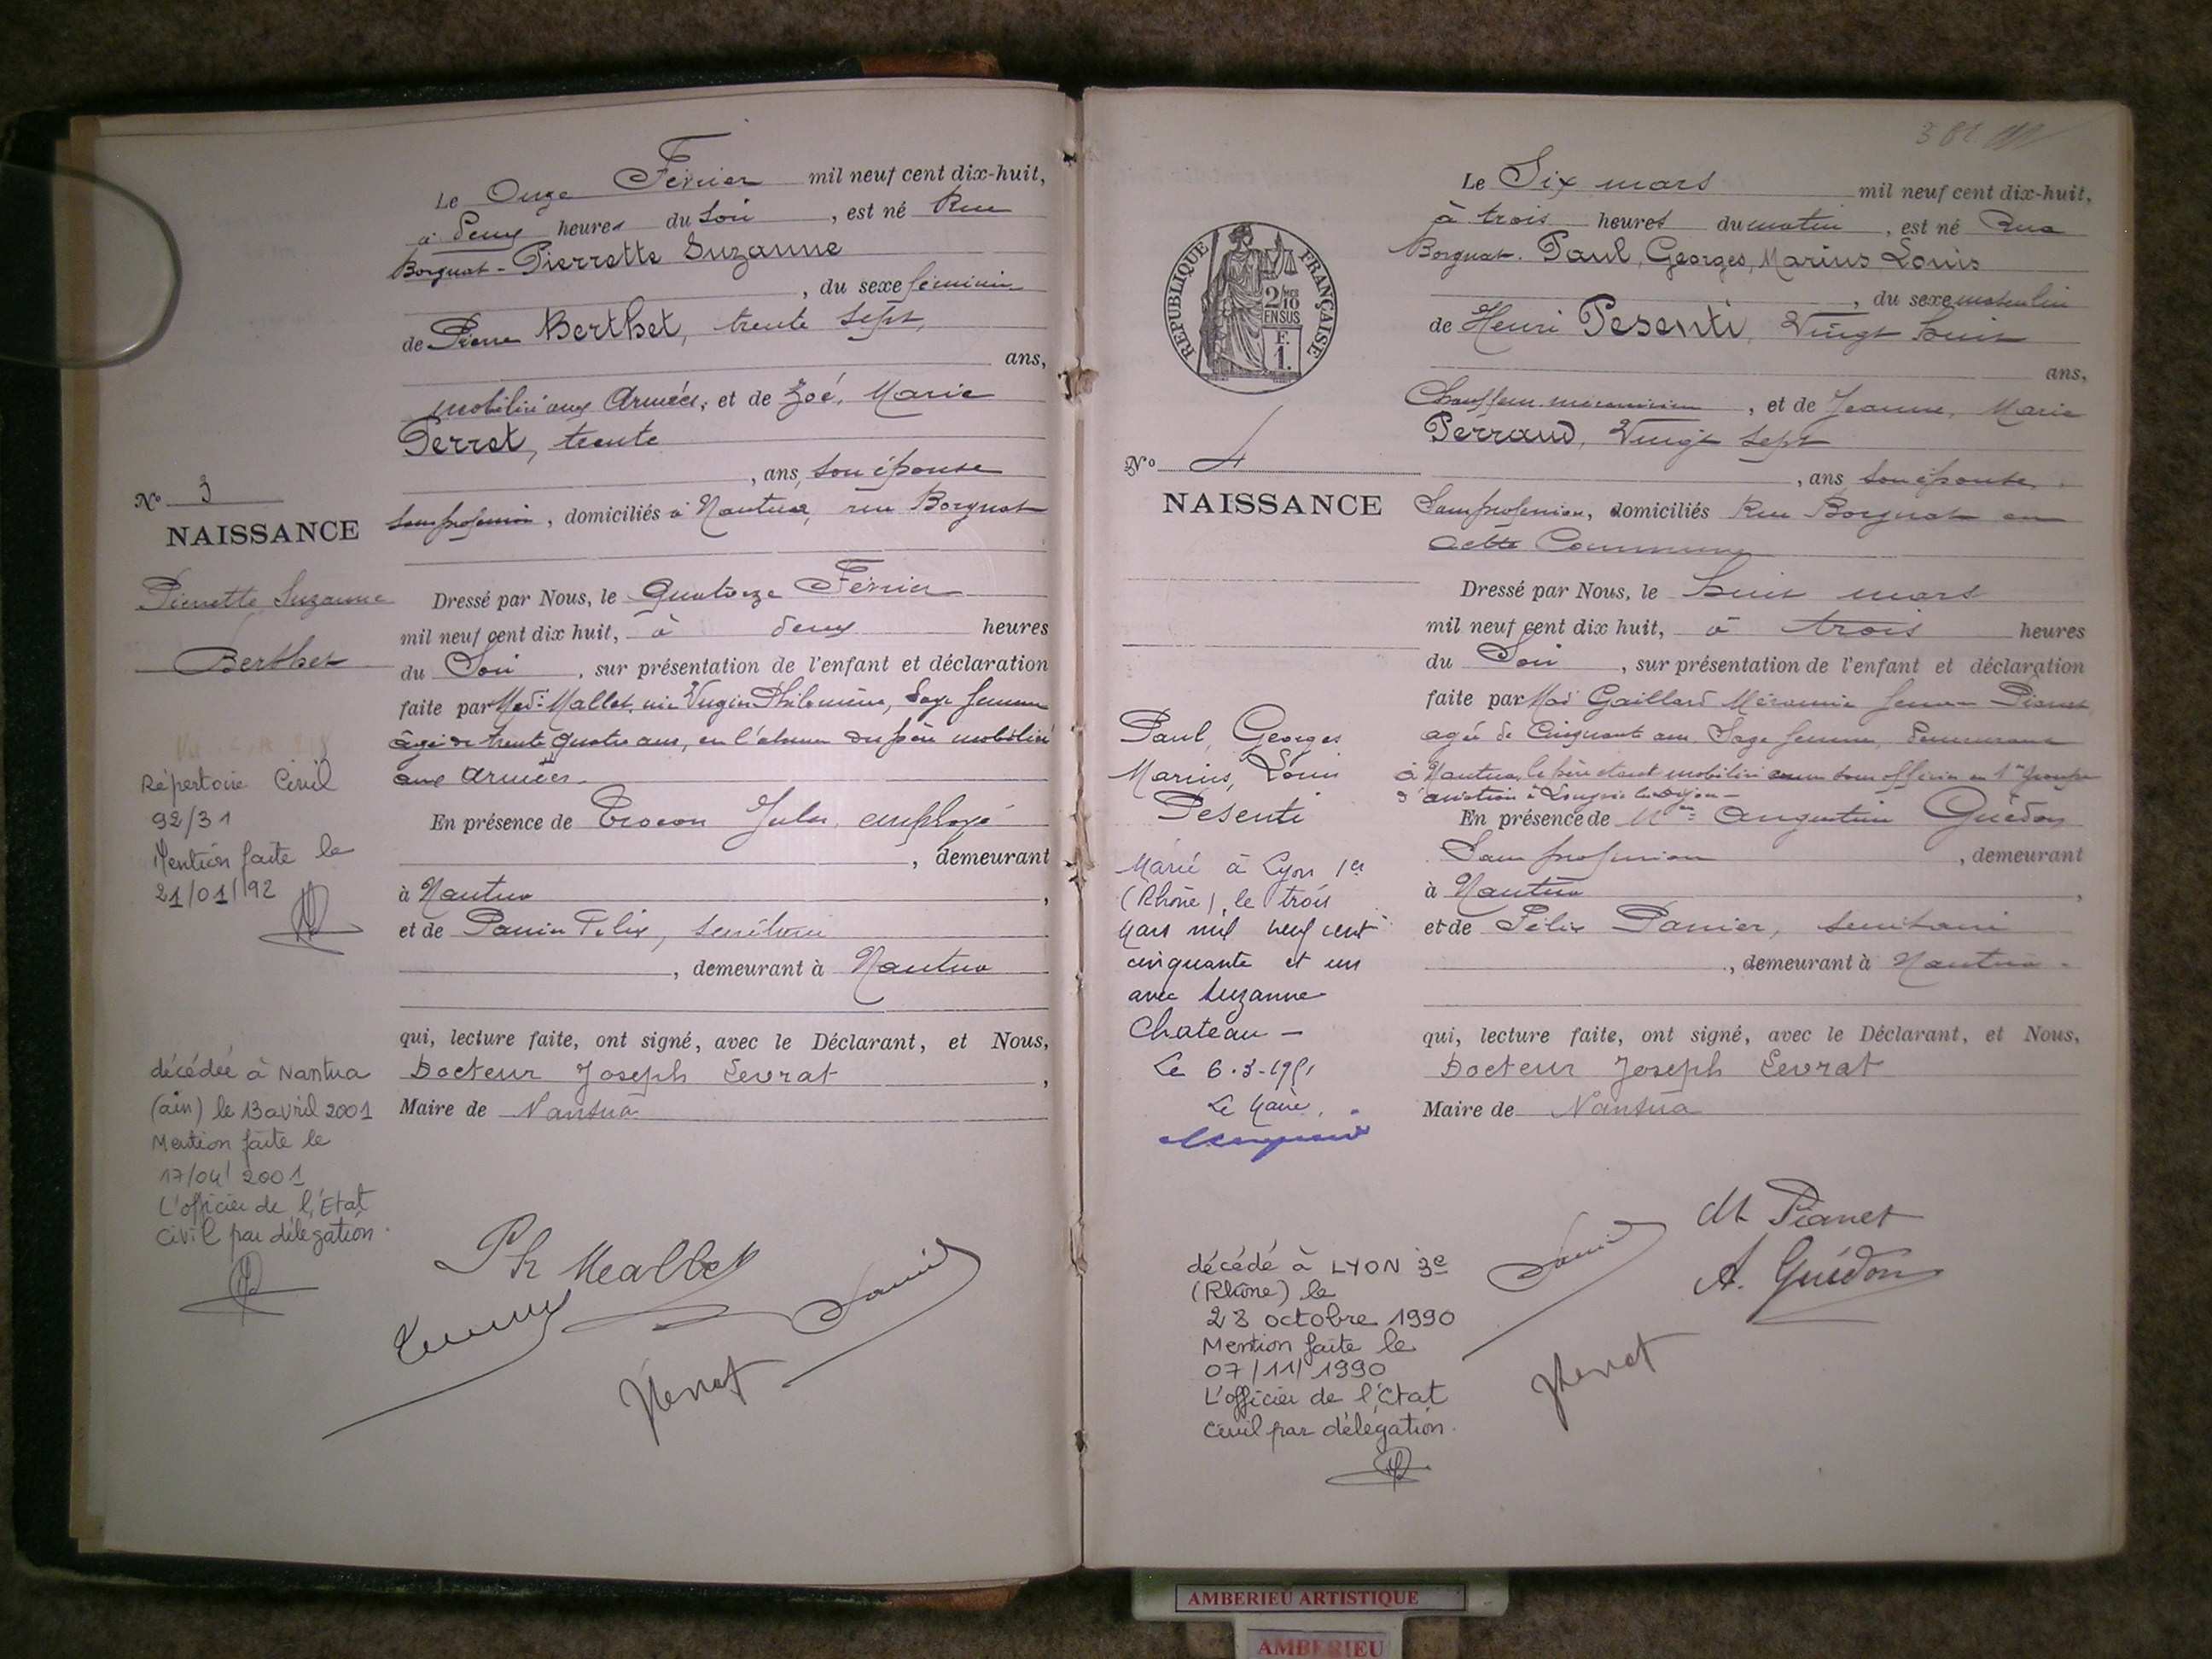 Le Onze Février mil neuf cent dix-huit,
à deux heures du Soir, est né Rue
Borgnat - Pierrette Suzanne
, du sexe féminin
de Pierre Berthet, trente sept,
ans,
mobilisé aux Armées, et de Zoé, Marie
Perret, trente
, ans, son épouse
sans profession, domiciliés à Nantua, rue Borgnat
No 3
NAISSANCE
Pierrette Suzanne
Berthet
Dressé par Nous, le Quatorze Février
mil neuf cent dix huit, à deux heures
du Soir, sur présentation de l'enfant et déclaration
faite par Made Mallet, née Philomène, Sage femme
âgée de trente quatre ans, en l'absence du père mobilisé
aux Armées.
En présence de Jules, employé
, demeurant
à Nantua,
et de Panier Félix, secrétaire
, demeurant à Nantua
qui, lecture faite, ont signé, avec le Déclarant, et Nous,
Docteur Joseph Levrat,
Maire de Nantua
Répertoire Civil
92/31
Mention faite le
21/01/92
décédée à Nantua
(ain) le 13 avril 2001
Mention faite le
17/04/2001
L'officier de l'Etat
Civil par délégation.
Ph Mallet
Panier
Levrat
Le Six mars mil neuf cent dix-huit,
à trois heures du matin, est né Rue
Borgnat. Paul, Georges, Marius Louis
, du sexe masculin
de Henri Pesenti, Vingt huit
ans,
Chauffeur mécanicien, et de Jeanne, Marie
Perraud, Vingt sept
, ans son épouse,
Sans profession, domiciliés Rue Borgnat en
cette Commune
RÉPUBLIQUE FRANÇAISE
2/10 EN SUS
F.
1.
No 4
NAISSANCE
Dressé par Nous, le huit mars
mil neuf cent dix huit, à trois heures
du Soir, sur présentation de l'enfant et déclaration
faite par Mad Gaillard femme Pianet
agée de Cinquante ans Sage femme, demeurant
à Nantua, le père étant mobilisé sous officier au 1er groupe
d'aviation à Longvic les Dijon -
En présence de Mme Augustine Guédon
Sans profession, demeurant
à Nantua,
et de Félix Panier, secrétaire
, demeurant à Nantua.
qui, lecture faite, ont signé, avec le Déclarant, et Nous,
Docteur Joseph Levrat
Maire de Nantua
Paul, Georges
Marius, Louis
Pesenti
Marié à Lyon 1er
(Rhône), le trois
Mars mil neuf cent
cinquante et un
avec Suzanne
Chateau -
Le 6.3-1951
Le Maire,
décédé à LYON 3e
(Rhône) le
23 octobre 1990
Mention faite le
07/11/1990
L'officier de l'Etat
Civil par délégation.
M Pianet
Panier
A. Guédon
Levrat
AMBERIEU ARTISTIQUE
AMBERIEU